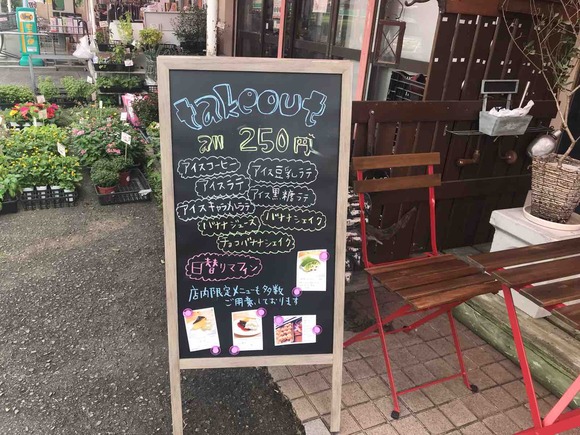 takeout
各種 250円
アイスコーヒー
アイス豆乳ラテ
アイスラテ
アイス黒糖ラテ
アイスキャラメルラテ
バナナジュース
バナナシェイク
チョコバナナシェイク
日替りマフィン
店内限定メニューも多数
ご用意しております